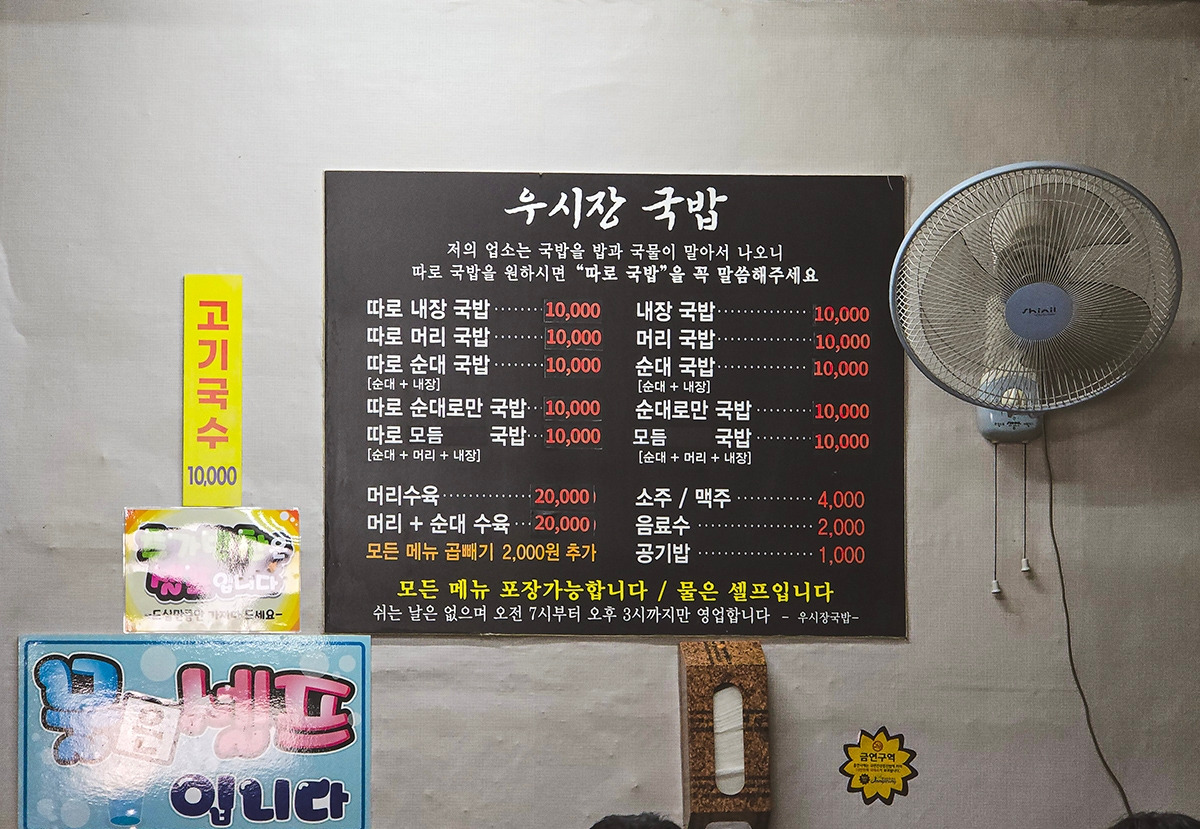 우시장 국밥
저의 업소는 국밥을 밥과 국물이 말아서 나오니
따로 국밥을 원하시면 “따로 국밥”을 꼭 말씀해주세요
따로 내장 국밥 ······· 10,000
따로 머리 국밥 ······· 10,000
따로 순대 국밥 ······· 10,000
[순대 + 내장]
따로 순대로만 국밥 ·· 10,000
따로 모듬 국밥 ··· 10,000
[순대 + 머리 + 내장]
머리수육 ············· 20,000
머리 + 순대 수육 ··· 20,000
모든 메뉴 곱빼기 2,000원 추가
내장 국밥 ·············· 10,000
머리 국밥 ·············· 10,000
순대 국밥 ·············· 10,000
[순대 + 내장]
순대로만 국밥 ········ 10,000
모듬 국밥 ········ 10,000
[순대 + 머리 + 내장]
소주 / 맥주 ··········· 4,000
음료수 ················· 2,000
공기밥 ················· 1,000
모든 메뉴 포장가능합니다 / 물은 셀프입니다
쉬는 날은 없으며 오전 7시부터 오후 3시까지만 영업합니다 - 우시장국밥-
고기국수
10,000
입니다
물은 셀프
입니다
Shinil
금연구역